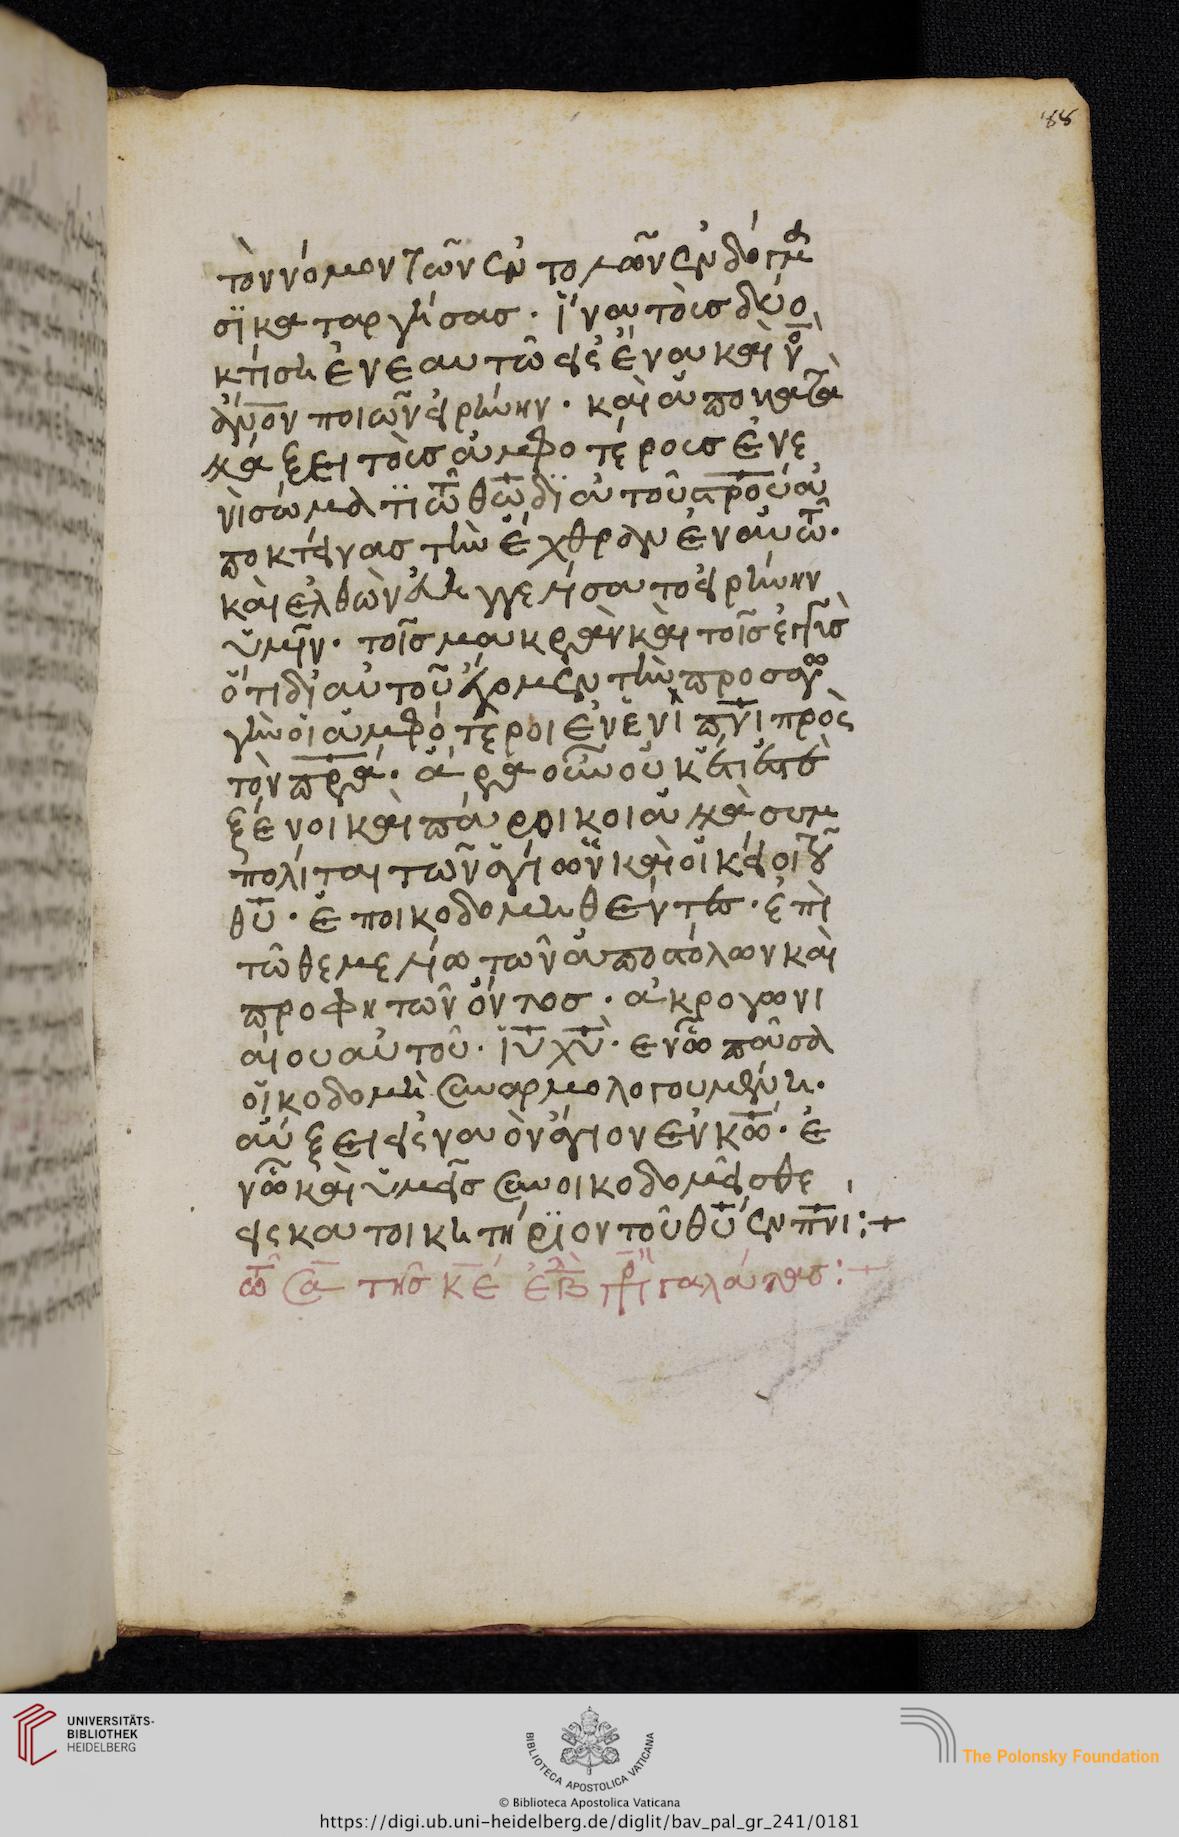 88
τὸν νόμον τῶν ἐντολῶν ἐν δόγμα
σϊ καταργήσας · ἵνα τοὺς δύο
κτίση ἐν ἑαυτῶ εἰς ἕνα καινὸν
ἄνον ποιῶν εἰρήνην · καὶ ἀποκατα
λλάξει τοὺς ἀμφοτέρους ἐν ἑ
νὶ σώματϊ τῶ θω̅ δϊὰ τοῦ στρου ἀ
ποκτείνας τὴν ἔχθραν ἐν αὐτῶ ·
καὶ ἐλθὼν εὐηγγελίσατο εἰρήνην
ὑμῖν · τοῖς μακρὰν καὶ τοῖς ἐγγὺς
ὅτι δι αὐτοῦ ἔχομεν τὴν προσαγω
γὴν οἱ ἀμφότεροι ἐν ἑνὶ πνι πρὸς
τὸν πρα · ἄρα οὖν οὐκ ἔτι ἐστὲ
ξένοι καὶ πάροικοι ἀλλὰ συμ
πολίται τῶν ἁγίων καὶ οἰκεῖοι τοῦ
θυ · ἐποικοδομηθέντες · ἐπὶ
τῶ θεμελίω τῶν ἀποστόλων καὶ
προφητῶν ὄντος · ἀκρογωνι
αίου αὐτοῦ · ἰυ χυ · ἐν ὧ πᾶσα
οἰκοδομὴ συναρμολογουμένη ·
αὔξει εἰς ναὸν ἅγιον ἐν κω · ἐ
ν ὧ καὶ ὑμεῖς συνοικοδομεῖσθε
εἰς κατοικητήρϊον τοῦ θυ ἐν πνι :+
τῶ σα τῆς κε ἑβ πρ γαλάτας :+
UNIVERSITÄTS-
BIBLIOTHEK
HEIDELBERG
BIBLIOTECA APOSTOLICA VATICANA
The Polonsky Foundation
© Biblioteca Apostolica Vaticana
https://digi.ub.uni-heidelberg.de/diglit/bav_pal_gr_241/0181